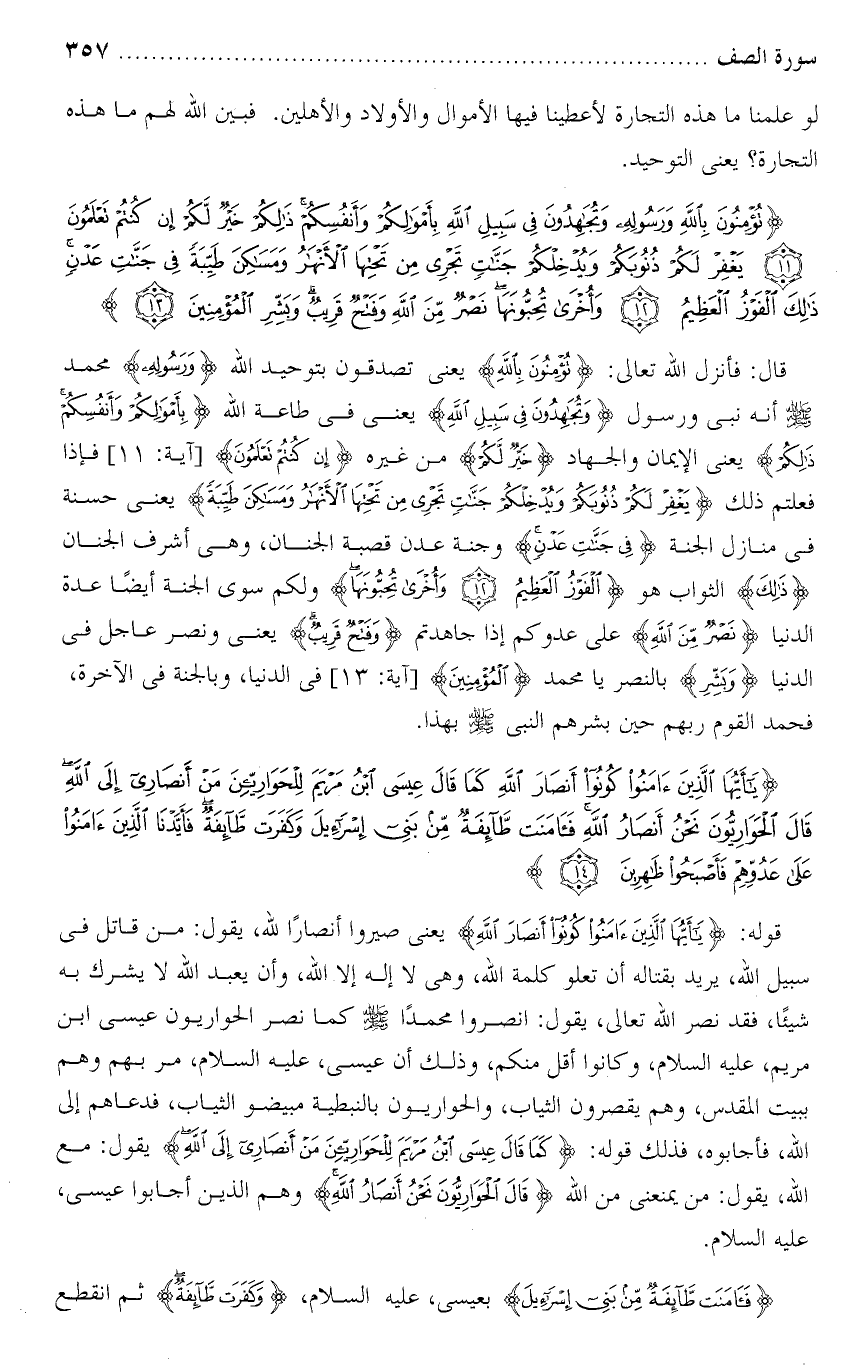 سورة الصف ........................................................................... ٣٥٧
لو علمنا ما هذه التجارة لأعطينا فيها الأموال والأولاد والأهلين. فبين الله لهم ما هذه
التجارة؟ يعنى التوحيد.
﴿نُؤْمِنُونَ بِٱللَّهِ وَرَسُولِهِۦ وَتُجَٰهِدُونَ فِى سَبِيلِ ٱللَّهِ بِأَمْوَٰلِكُمْ وَأَنفُسِكُمْ ۚ ذَٰلِكُمْ خَيْرٌ لَّكُمْ إِن كُنتُمْ تَعْلَمُونَ
﴿١١﴾ يَغْفِرْ لَكُمْ ذُنُوبَكُمْ وَيُدْخِلْكُمْ جَنَّٰتٍ تَجْرِى مِن تَحْتِهَا ٱلْأَنْهَٰرُ وَمَسَٰكِنَ طَيِّبَةً فِى جَنَّٰتِ عَدْنٍ ۚ
ذَٰلِكَ ٱلْفَوْزُ ٱلْعَظِيمُ ﴿١٢﴾ وَأُخْرَىٰ تُحِبُّونَهَا ۖ نَصْرٌ مِّنَ ٱللَّهِ وَفَتْحٌ قَرِيبٌ ۗ وَبَشِّرِ ٱلْمُؤْمِنِينَ ﴿١٣﴾ ﴾
قال: فأنزل الله تعالى: ﴿نُؤْمِنُونَ بِٱللَّهِ﴾ يعنى تصدقون بتوحيد الله ﴿وَرَسُولِهِۦ﴾ محمد
ﷺ أنه نبى ورسول ﴿وَتُجَٰهِدُونَ فِى سَبِيلِ ٱللَّهِ﴾ يعنى فى طاعة الله ﴿بِأَمْوَٰلِكُمْ وَأَنفُسِكُمْ ۚ
ذَٰلِكُمْ﴾ يعنى الإيمان والجهاد ﴿خَيْرٌ لَّكُمْ﴾ من غيره ﴿إِن كُنتُمْ تَعْلَمُونَ﴾ [آية: ١١] فإذا
فعلتم ذلك ﴿يَغْفِرْ لَكُمْ ذُنُوبَكُمْ وَيُدْخِلْكُمْ جَنَّٰتٍ تَجْرِى مِن تَحْتِهَا ٱلْأَنْهَٰرُ وَمَسَٰكِنَ طَيِّبَةً﴾ يعنى حسنة
فى منازل الجنة ﴿فِى جَنَّٰتِ عَدْنٍ ۚ﴾ وجنة عدن قصبة الجنان، وهى أشرف الجنان
﴿ذَٰلِكَ﴾ الثواب هو ﴿ٱلْفَوْزُ ٱلْعَظِيمُ ﴿١٢﴾ وَأُخْرَىٰ تُحِبُّونَهَا ۖ﴾ ولكم سوى الجنة أيضًا عدة
الدنيا ﴿نَصْرٌ مِّنَ ٱللَّهِ﴾ على عدوكم إذا جاهدتم ﴿وَفَتْحٌ قَرِيبٌ ۗ﴾ يعنى ونصر عاجل فى
الدنيا ﴿وَبَشِّرِ﴾ بالنصر يا محمد ﴿ٱلْمُؤْمِنِينَ﴾ [آية: ١٣] فى الدنيا، وبالجنة فى الآخرة،
فحمد القوم ربهم حين بشرهم النبى ﷺ بهذا.
﴿يَٰٓأَيُّهَا ٱلَّذِينَ ءَامَنُوا۟ كُونُوٓا۟ أَنصَارَ ٱللَّهِ كَمَا قَالَ عِيسَى ٱبْنُ مَرْيَمَ لِلْحَوَارِيِّـۧنَ مَنْ أَنصَارِىٓ إِلَى ٱللَّهِ ۖ
قَالَ ٱلْحَوَارِيُّونَ نَحْنُ أَنصَارُ ٱللَّهِ ۖ فَـَٔامَنَت طَّآئِفَةٌ مِّنۢ بَنِىٓ إِسْرَٰٓءِيلَ وَكَفَرَت طَّآئِفَةٌ ۖ فَأَيَّدْنَا ٱلَّذِينَ ءَامَنُوا۟
عَلَىٰ عَدُوِّهِمْ فَأَصْبَحُوا۟ ظَٰهِرِينَ ﴿١٤﴾ ﴾
قوله: ﴿يَٰٓأَيُّهَا ٱلَّذِينَ ءَامَنُوا۟ كُونُوٓا۟ أَنصَارَ ٱللَّهِ﴾ يعنى صيروا أنصارًا لله، يقول: من قاتل فى
سبيل الله، يريد بقتاله أن تعلو كلمة الله، وهى لا إله إلا الله، وأن يعبد الله لا يشرك به
شيئًا، فقد نصر الله تعالى، يقول: انصروا محمدًا ﷺ كما نصر الحواريون عيسى ابن
مريم، عليه السلام، وكانوا أقل منكم، وذلك أن عيسى، عليه السلام، مر بهم وهم
ببيت المقدس، وهم يقصرون الثياب، والحواريون بالنبطية مبيضو الثياب، فدعاهم إلى
الله، فأجابوه، فذلك قوله: ﴿كَمَا قَالَ عِيسَى ٱبْنُ مَرْيَمَ لِلْحَوَارِيِّـۧنَ مَنْ أَنصَارِىٓ إِلَى ٱللَّهِ ۖ﴾ يقول: مع
الله، يقول: من يمنعنى من الله ﴿قَالَ ٱلْحَوَارِيُّونَ نَحْنُ أَنصَارُ ٱللَّهِ ۖ﴾ وهم الذين أجابوا عيسى،
عليه السلام.
﴿فَـَٔامَنَت طَّآئِفَةٌ مِّنۢ بَنِىٓ إِسْرَٰٓءِيلَ﴾ بعيسى، عليه السلام، ﴿وَكَفَرَت طَّآئِفَةٌ ۖ﴾ ثم انقطع